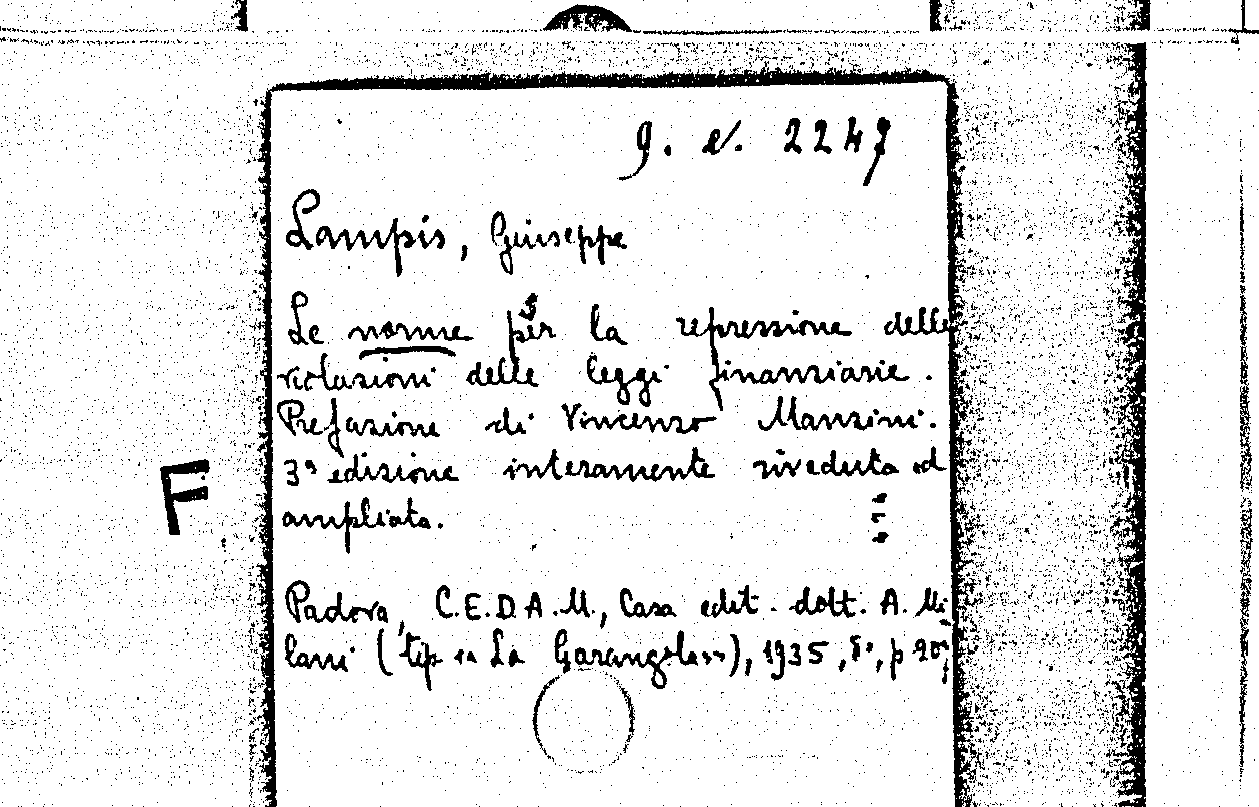 g. v. 2247
Lampis, Giuseppe
Le norme per la repressione delle
violazioni delle leggi finanziarie.
Prefazione di Vincenzo Manzini.
3ª edizione interamente riveduta ed
F
ampliata.
Padova, C.E.D.A.M., Casa edit. dott. A. Mi-
lani (tip La Garangola), 1935, 8°, p